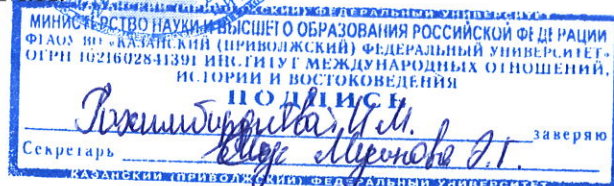 КАЗАНСКИЙ (ПРИВОЛЖСКИЙ) ФЕДЕРАЛЬНЫЙ УНИВЕРСИТЕТ
МИНИСТЕРСТВО НАУКИ И ВЫСШЕГО ОБРАЗОВАНИЯ РОССИЙСКОЙ ФЕДЕРАЦИИ
ФГАОУ ВО «КАЗАНСКИЙ (ПРИВОЛЖСКИЙ) ФЕДЕРАЛЬНЫЙ УНИВЕРСИТЕТ»
ОГРН 1021602841391 ИНСТИТУТ МЕЖДУНАРОДНЫХ ОТНОШЕНИЙ,
ИСТОРИИ И ВОСТОКОВЕДЕНИЯ
ПОДПИСЬ
И.М. заверяю
Секретарь Э.Г.
КАЗАНСКИЙ (ПРИВОЛЖСКИЙ) ФЕДЕРАЛЬНЫЙ УНИВЕРСИТЕТ